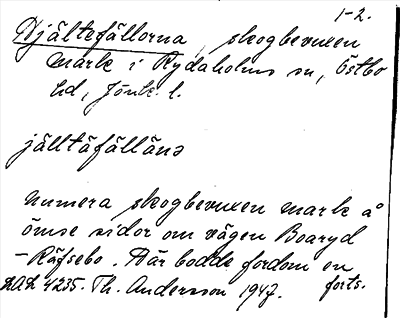 1-2.
Hjältefällorna, skogbevuxen
mark i Rydaholms sn, Östbo
hd, Jönk. l.
jälltäfälläna
numera skogbevuxen mark å
ömse sidor om vägen Boaryd
- Räfsebo. Där bodde fordom en
DAL 4235. Th. Andersson 1947. forts.